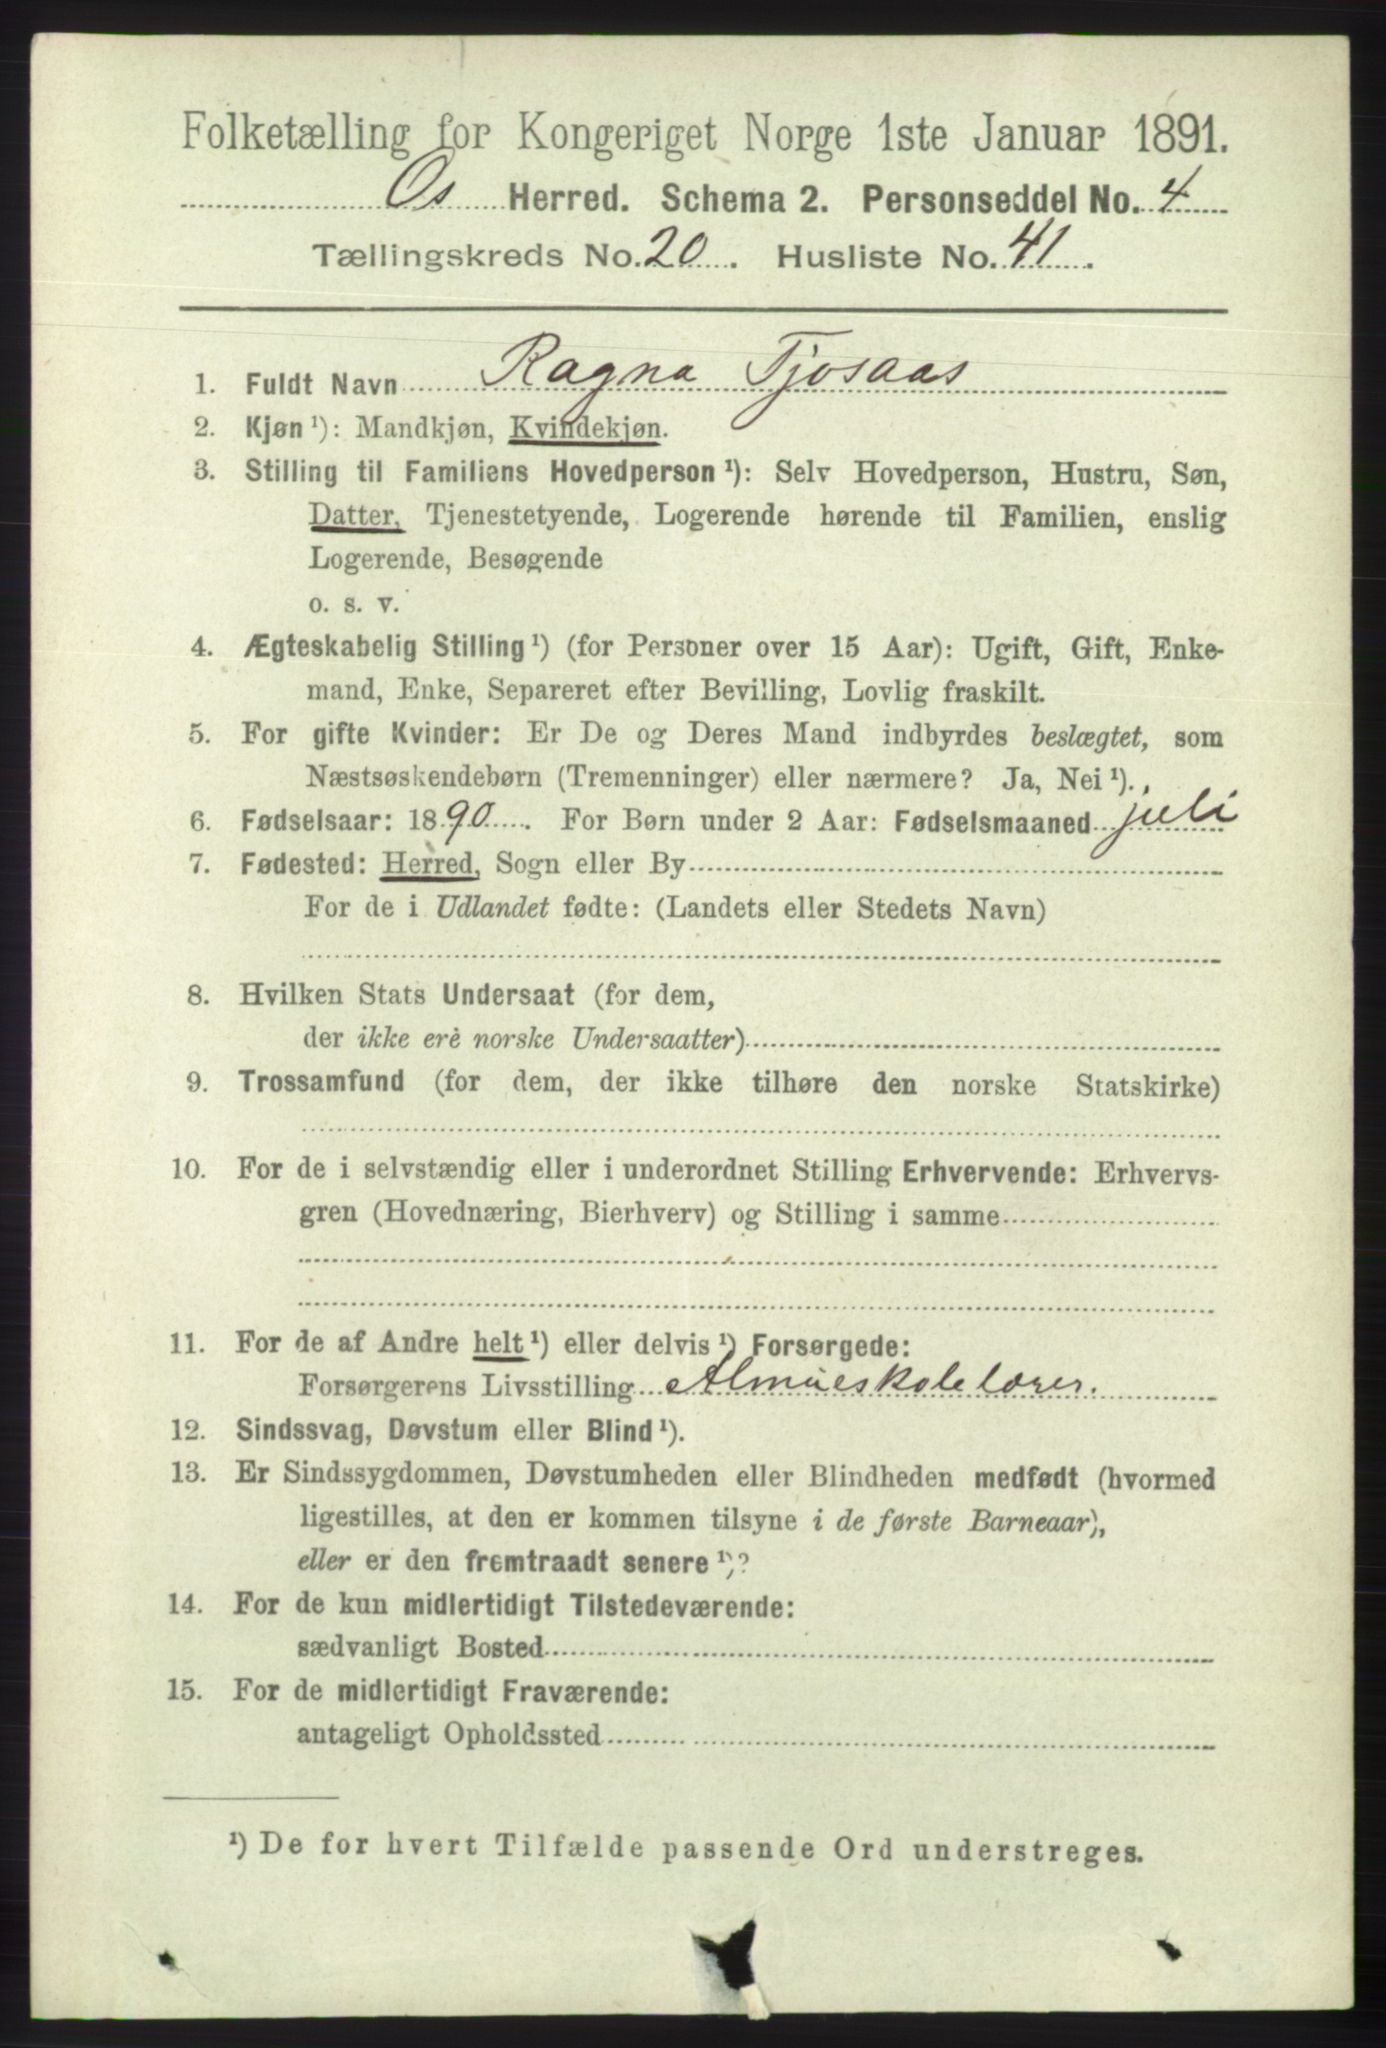 Folketælling for Kongeriget Norge 1ste Januar 1891.
Os Herred. Schema 2. Personseddel No. 4
Tællingskreds No. 20. Husliste No. 41.
1. Fuldt Navn Ragna Tjosaas
2. Kjøn ¹): Mandkjøn, Kvindekjøn.
3. Stilling til Familiens Hovedperson ¹): Selv Hovedperson, Hustru, Søn,
Datter, Tjenestetyende, Logerende hørende til Familien, enslig
Logerende, Besøgende
o. s. v.
4. Ægteskabelig Stilling ¹) (for Personer over 15 Aar): Ugift, Gift, Enke-
mand, Enke, Separeret efter Bevilling, Lovlig fraskilt.
5. For gifte Kvinder: Er De og Deres Mand indbyrdes beslægtet, som
Næstsøskendebørn (Tremenninger) eller nærmere? Ja, Nei ¹).
6. Fødselsaar: 1890. For Børn under 2 Aar: Fødselsmaaned juli
7. Fødested: Herred, Sogn eller By
For de i Udlandet fødte: (Landets eller Stedets Navn)
8. Hvilken Stats Undersaat (for dem,
der ikke ere norske Undersaatter)
9. Trossamfund (for dem, der ikke tilhøre den norske Statskirke)
10. For de i selvstændig eller i underordnet Stilling Erhvervende: Erhvervs-
gren (Hovednæring, Bierhverv) og Stilling i samme
11. For de af Andre helt ¹) eller delvis ¹) Forsørgede:
Forsørgerens Livsstilling Almueskolelærer.
12. Sindssvag, Døvstum eller Blind ¹).
13. Er Sindssygdommen, Døvstumheden eller Blindheden medfødt (hvormed
ligestilles, at den er kommen tilsyne i de første Barneaar),
eller er den fremtraadt senere ¹)?
14. For de kun midlertidigt Tilstedeværende:
sædvanligt Bosted
15. For de midlertidigt Fraværende:
antageligt Opholdssted
¹) De for hvert Tilfælde passende Ord understreges.